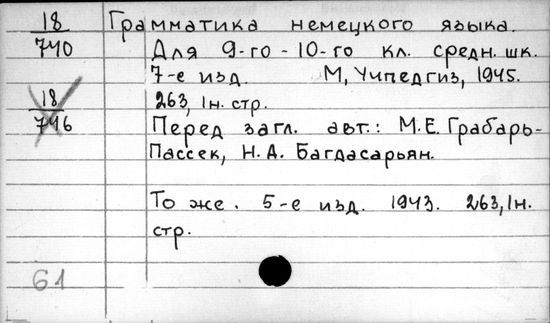 18 Грамматика немецкого языка.
740 Для 9-го-10-го кл. средн. шк.
7-е изд. М, Учпедгиз, 1945.
18 263, 1н. стр.
746 Перед загл. авт.: М.Е. Грабарь-
Пассек, Н.А. Багдасарьян.
То же. 5-е изд. 1943. 263, 1н.
стр.
61